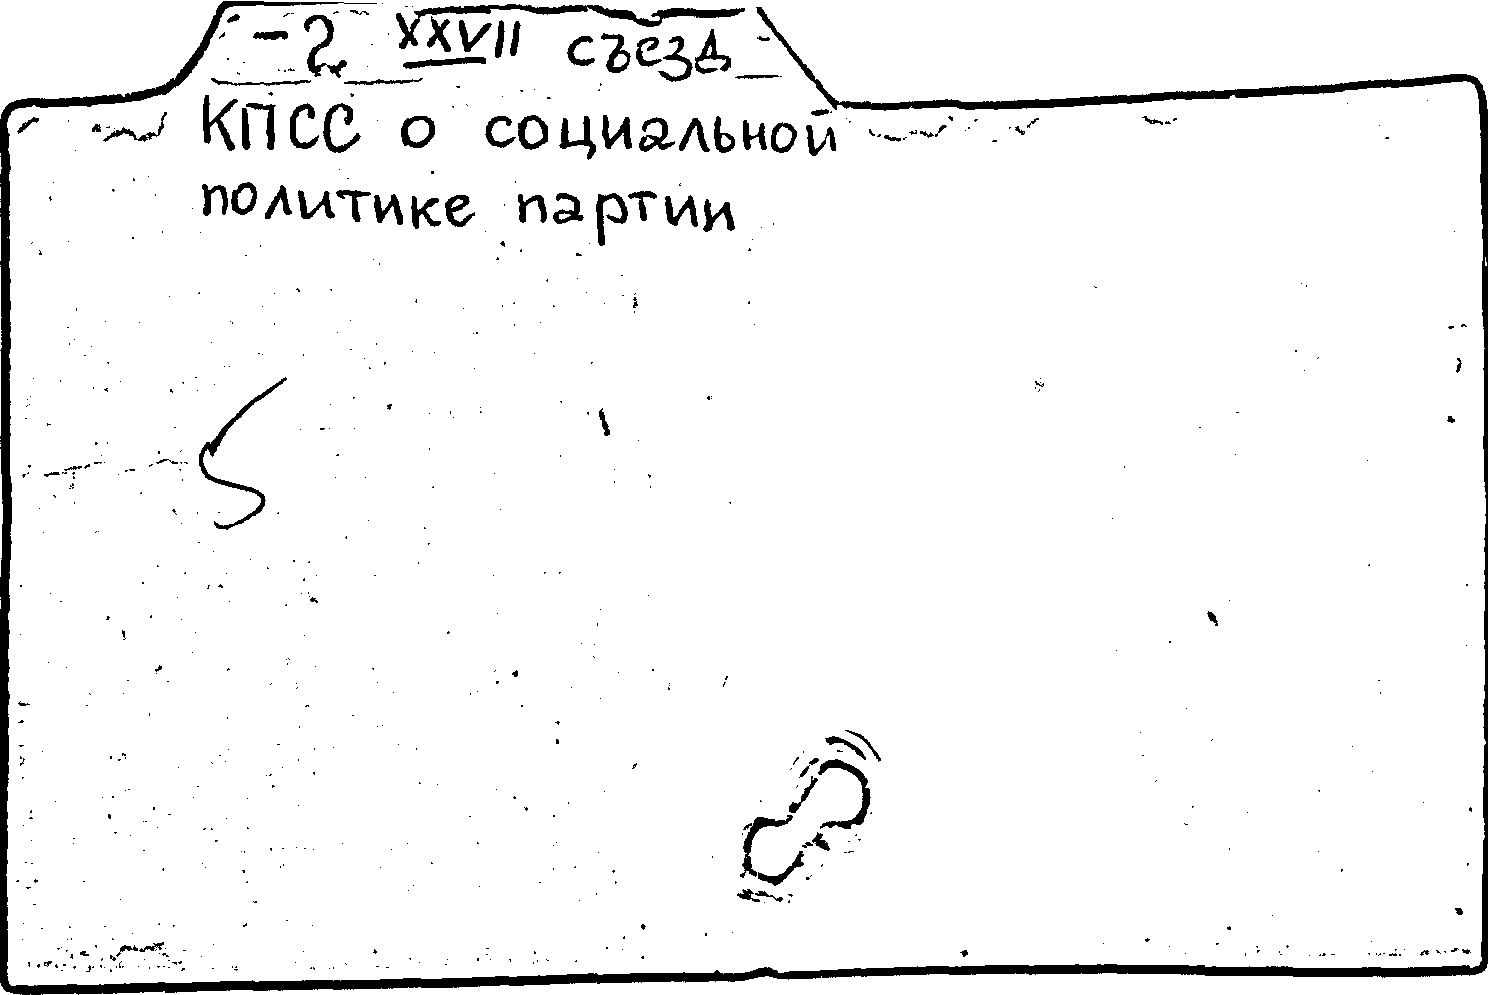 -2 XXVII съезд
КПСС о социальной
политике партии